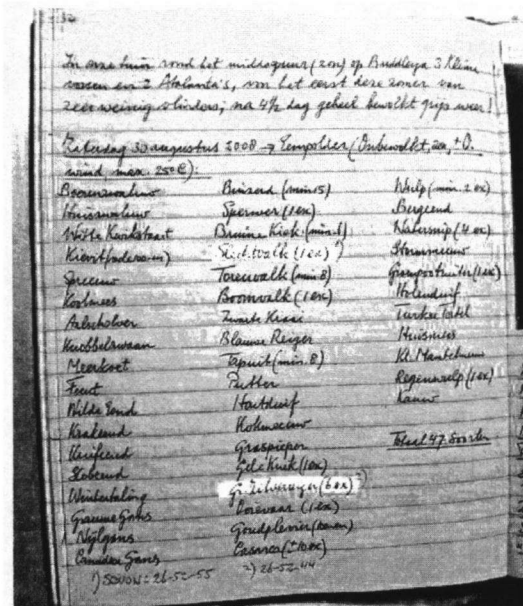 32
In onze tuin rond het middaguur (zon) op Buddleya 3 Kleine
vossen en 2 Atalanta's, voor het eerst deze zomer van
zeer weinig vlinders; na 4½ dag geheel bewolkt grijs weer!
Zaterdag 30 augustus 2008 → Eempolder (Onbewolkt, zon, ± O.
wind max. 25°C):
Boerenzwaluw
Huiszwaluw
Witte Kwikstaart
Kievit
Spreeuw
Koolmees
Aalscholver
Knobbelzwaan
Meerkoet
Fuut
Wilde Eend
Krakeend
Kuifeend
Slobeend
Wintertaling
Grauwe Gans
Nijlgans
Canadese Gans
Buizerd (min 15)
Sperwer (1 ex)
Bruine Kiek. (min. 1)
valk (1 ex) 1)
Torenvalk (min. 8)
Boomvalk (1 ex)
Zwarte Kraai
Blauwe Reiger
Tapuit (min. 8)
Putter
Houtduif
Kokmeeuw
Graspieper
Gele Kwik (1 ex)
Gr. Zilverreiger (6 ex) 2)
Ooievaar (1 ex)
Goudplevier
Casarca (± 10 ex)
Wulp (min. 20 ex)
Bergeend
Watersnip (4 ex)
Stormmeeuw
Groenpootruiter (1 ex)
Holenduif
Turkse Tortel
Huismus
Kl. Mantelmeeuw
Regenwulp (1 ex)
Kauw
Totaal 47 soorten
1) SOVON = 26-52-55
2) 26-52-44